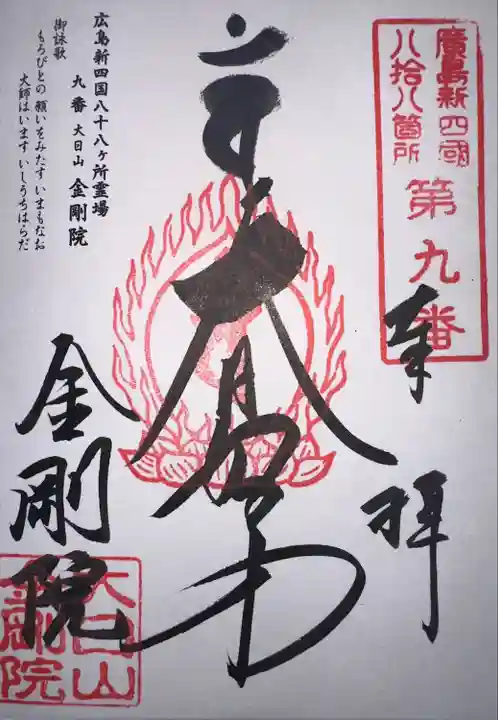 廣島新四國
八拾八箇所
第九番
奉拝
金剛院
広島新四国八十八ヶ所霊場
九番 大日山 金剛院
御詠歌
もろびとの 願いをみたす いまもなお
大師はいます いしうちはらだ
大日山
金剛院